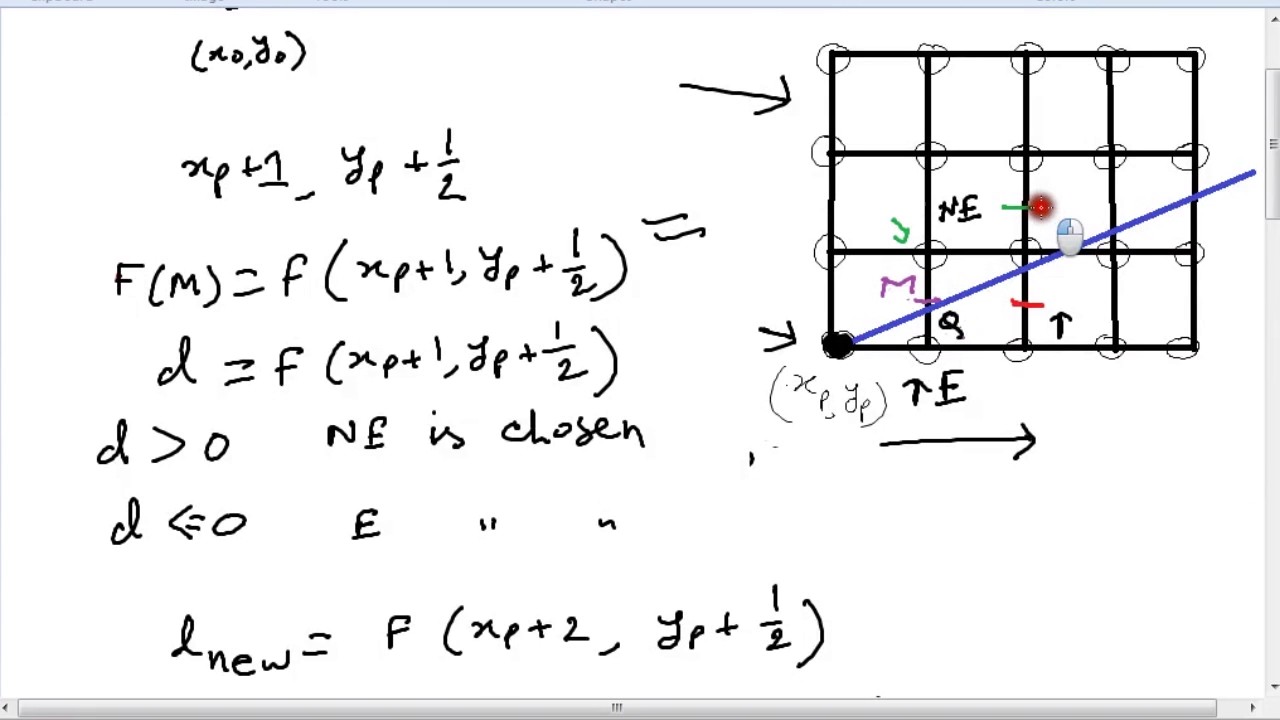 (x₀,y₀)
xₚ+1, yₚ+1/2
F(M) = F(xₚ+1, yₚ+1/2)
d = F(xₚ+1, yₚ+1/2)
d > 0 NE is chosen
d <= 0 E " "
dnew = F(xₚ+2, yₚ+1/2)
NE
M
Q
(xₚ,yₚ)
E